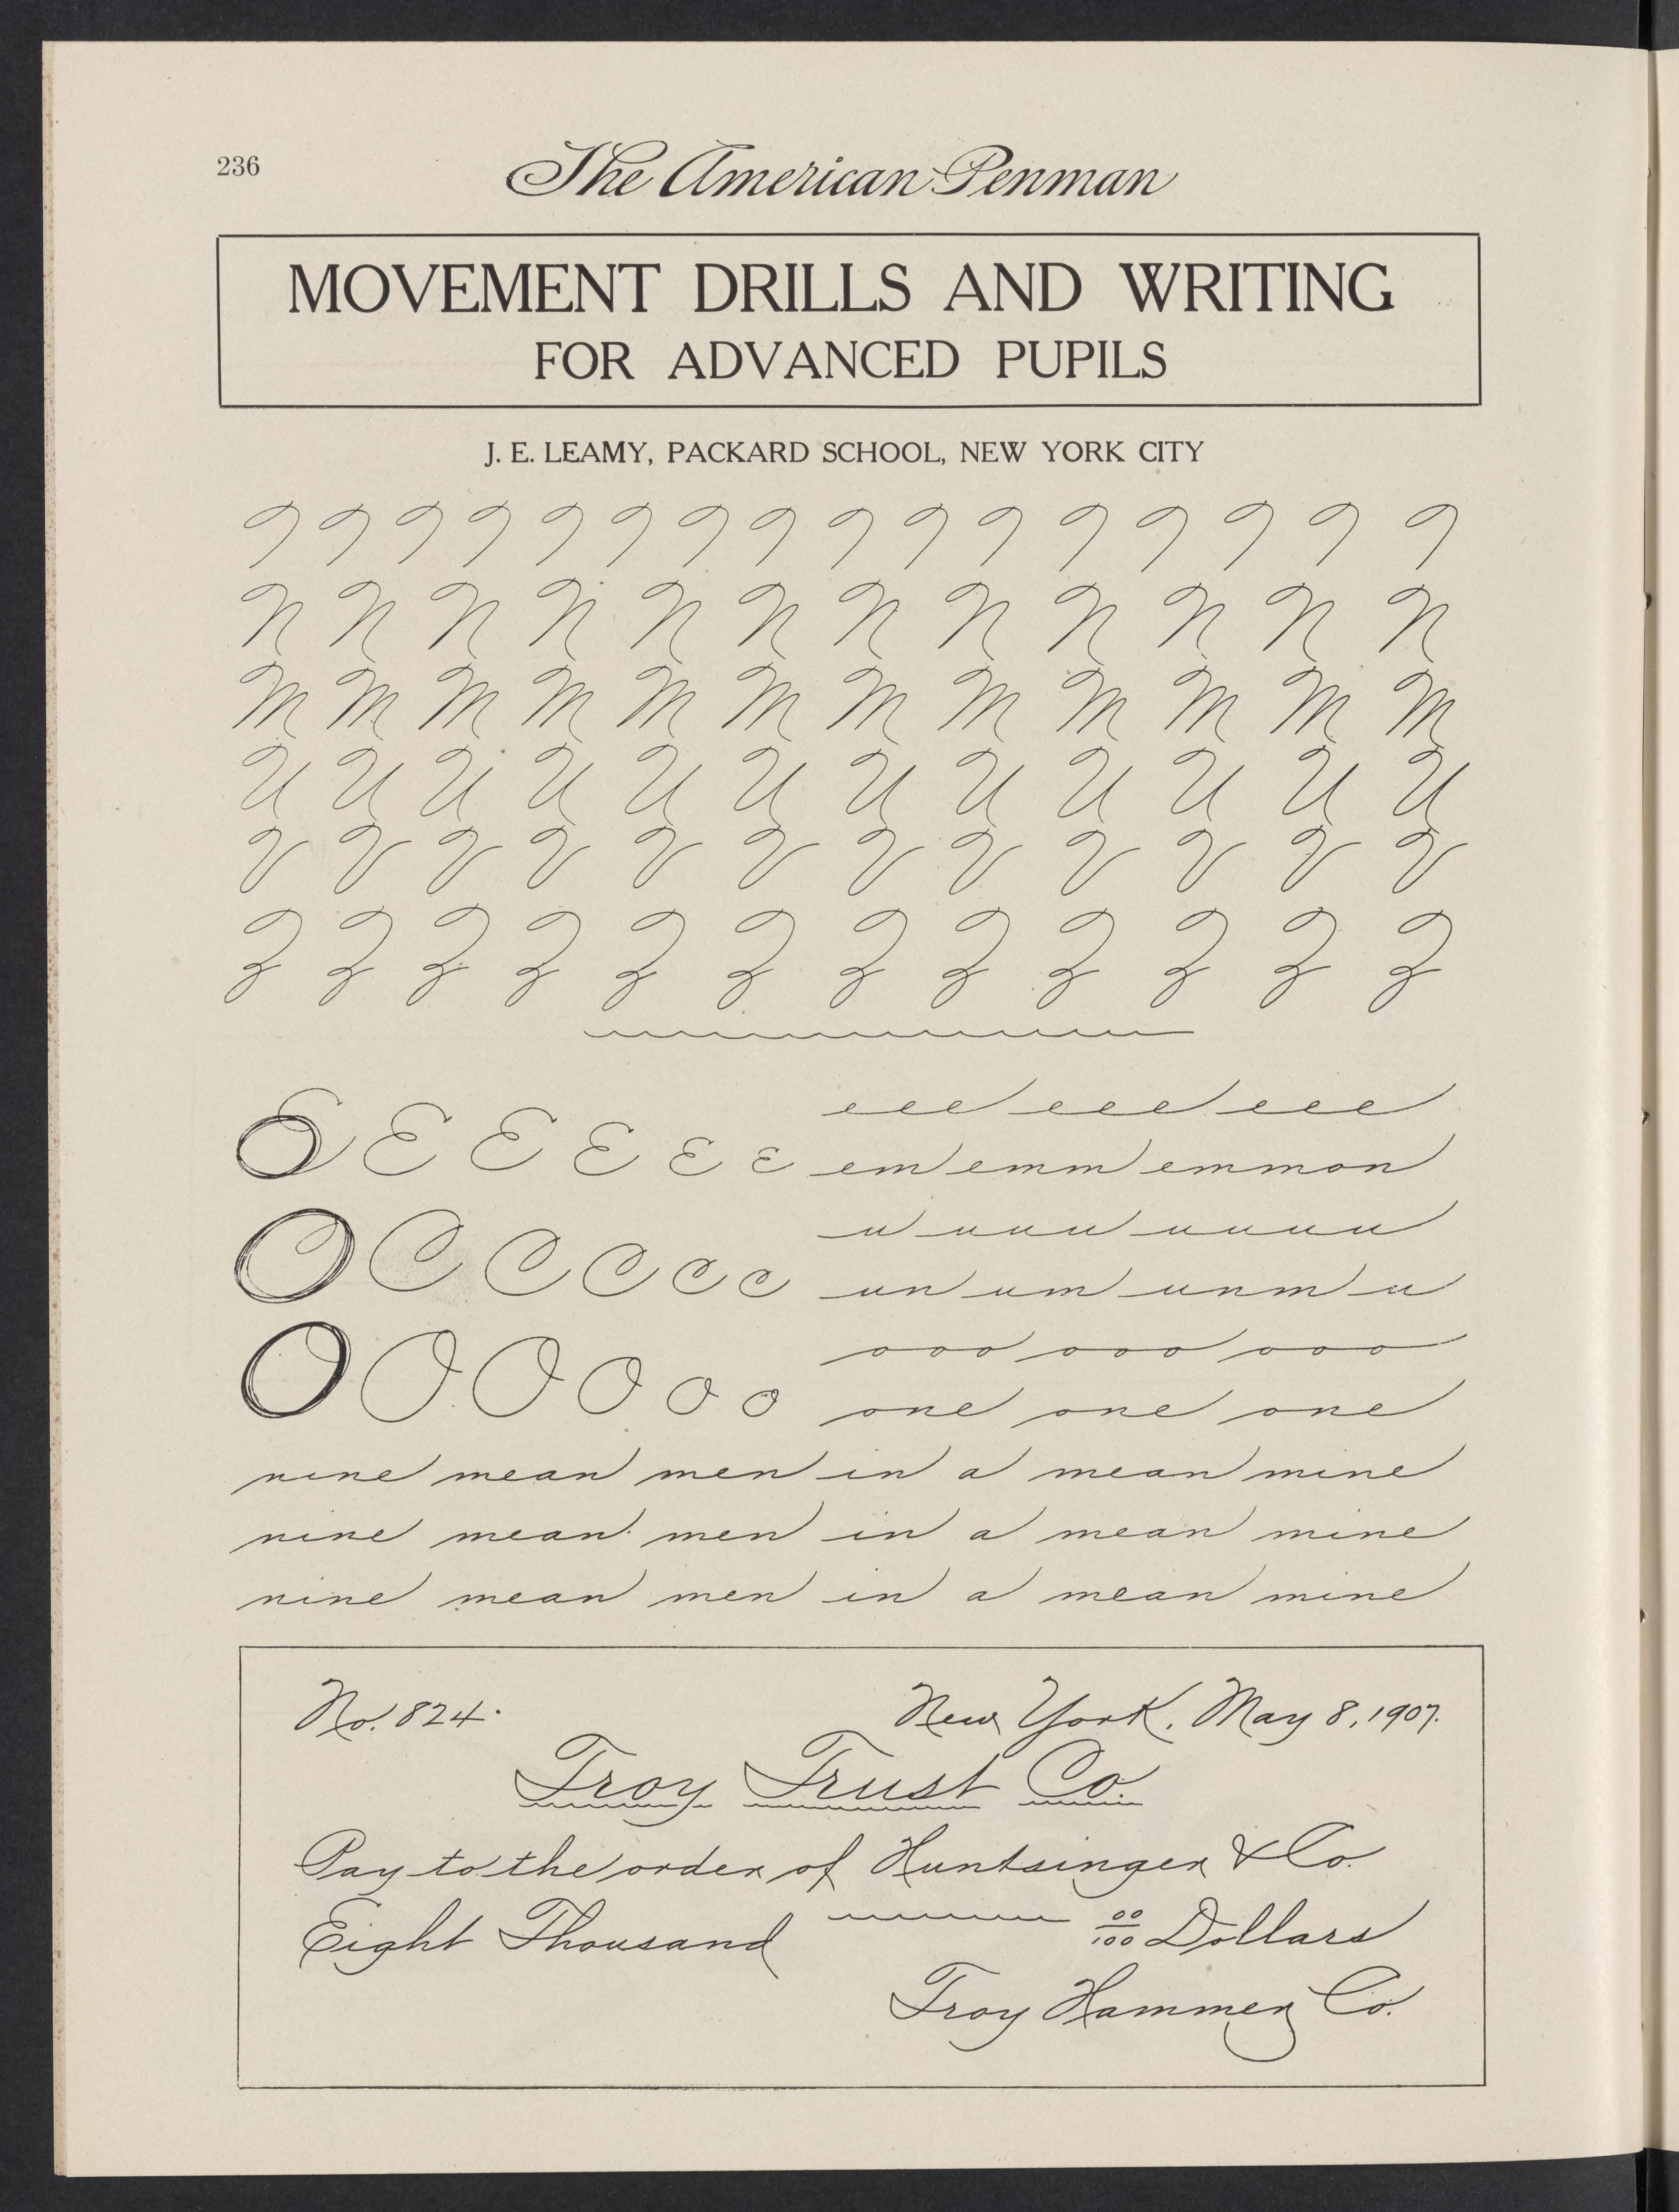 236
The American Penman
MOVEMENT DRILLS AND WRITING
FOR ADVANCED PUPILS
J. E. LEAMY, PACKARD SCHOOL, NEW YORK CITY
N N N N N N N N N N N N
M M M M M M M M M M M M
U U U U U U U U U U U U
V V V V V V V V V V V V
Z Z Z Z Z Z Z Z Z Z Z Z
E E E E E E
eee eee eee
em emm emmon
C C C C C
u uuu uuuu
un um unm u
O O O O O O
ooo ooo ooo
one one one
nine mean men in a mean mine
nine mean men in a mean mine
nine mean men in a mean mine
No. 824. New York, May 8, 1907.
Troy Trust Co.
Pay to the order of Huntsinger & Co.
Eight Thousand 00/100 Dollars
Troy Hammer Co.